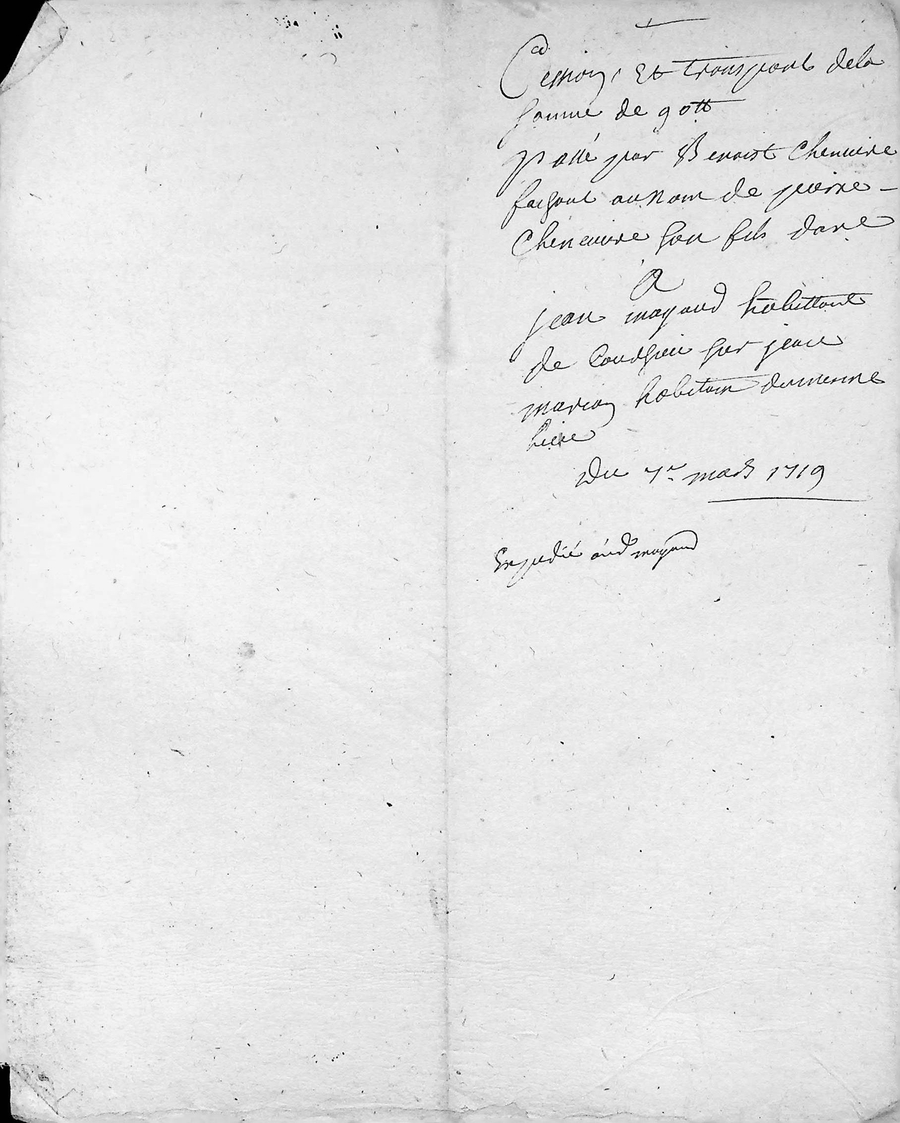 Cession, Et transport dela
somme de 90tt
passé par Benoist Cheneviere
faisant au nom de pierre
Cheneviere son fils
A
jean mayoud habittant
de sur jean
marion habitant
Du 7r mars 1719
Expedié aud mayoud